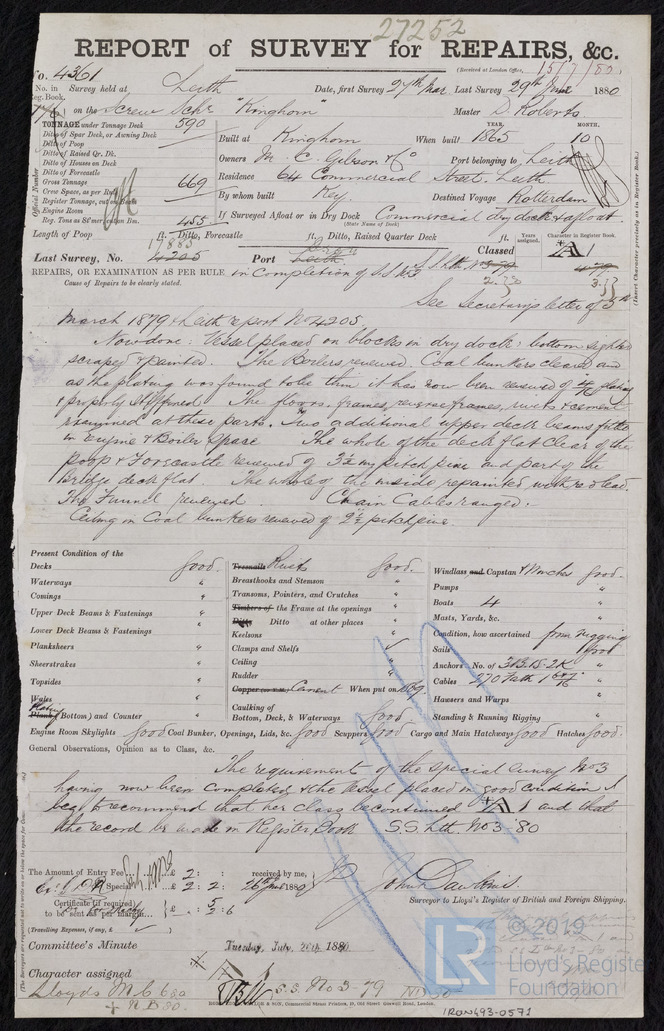 27252
REPORT of SURVEY for REPAIRS, &c.
(Received at London Office, 15/7/80.
No. 4361
No. in Reg. Book. Survey held at Leith Date, first Survey 27th Mar Last Survey 29th June 1880
on the Screw Schr "Kinghorn" Master D. Roberts
TONNAGE under Tonnage Deck 590
Ditto of Spar Deck, or Awning Deck
Ditto of Poop
Ditto of Raised Qr. Dk.
Ditto of Houses on Deck
Ditto of Forecastle
Gross Tonnage 669
Crew Space, as per Rule
Register Tonnage, cut on Beam
Engine Room
Reg. Tons as
455
Official Number
YEAR. MONTH.
Built at Kinghorn When built 1865 10
Owners M. C. Gibson & Co Port belonging to Leith
Residence 64 Commercial Street. Leith
By whom built Key Destined Voyage Rotterdam
If Surveyed Afloat or in Dry Dock Commercial dry dock & afloat
(State Name of Dock)
(Insert Character precisely as in Register Book.)
Length of Poop ft. Ditto, Forecastle ft. Ditto, Raised Quarter Deck ft.
Years assigned. Character in Register Book.
Last Survey, No. 4205 Port Leith Classed A 1
REPAIRS, OR EXAMINATION AS PER RULE in Completion of S.S. No 3
Cause of Repairs to be clearly stated.
See Secretary's letter of 5th
March 1879 & Leith report No 4205.
Now done: Vessel placed on blocks in dry dock: bottom sighted
scraped & painted. The Boilers renewed. Coal bunkers cleared and
as the plating was found to be thin it has now been renewed of 4/16 plating
& properly stiffened. The floors, frames, reverse frames, rivets & cement
examined at these parts. Two additional upper deck beams fitted
in Engine & Boiler space The whole of the deck flat clear of the
Poop & Forecastle renewed of 3½ in pitch pine and part of the
bridge deck flat. The whole of the inside repainted with red lead.
The Funnel renewed. Chain Cables ranged.
Ceiling in Coal bunkers renewed of 2½ pitch pine.
Present Condition of the
Decks good.
Waterways "
Comings "
Upper Deck Beams & Fastenings "
Lower Deck Beams & Fastenings "
Planksheers "
Sheerstrakes "
Topsides "
Wales "
Plating Bottom) and Counter "
Treenails Rivets good.
Breasthooks and Stemson "
Transoms, Pointers, and Crutches "
Timbers of the Frame at the openings "
Ditto Ditto at other places "
Keelsons "
Clamps and Shelfs ✓
Ceiling "
Rudder "
Copper Cement When put on 1869
Caulking of
Bottom, Deck, & Waterways good
Windlass and Capstan & Winches good.
Pumps "
Boats 4 "
Masts, Yards, &c. "
Condition, how ascertained from rigging
Sails good
Anchors No. of 3B.1S.2K "
Cables 270 Fath "
Hawsers and Warps "
Standing & Running Rigging "
Engine Room Skylights good Coal Bunker, Openings, Lids, &c. good Scuppers good Cargo and Main Hatchways good Hatches good.
General Observations, Opinion as to Class, &c.
The requirements of the special Survey No 3
having now been completed & the vessel placed in good condition I
beg to recommend that her class be continued A 1 and that
the record be made in Register Book S.S. Lth. No 3-80
The Amount of Entry Fee £ 2: : received by me,
Special £ 2: 2: 26th June 1880
Certificate (if required)
to be sent as per margin £ : 5: 6
(Travelling Expenses, if any, £ ✓ )
John Dawkins.
Surveyor to Lloyd's Register of British and Foreign Shipping.
Committee's Minute Tuesday, July, 20th 1880.
Character assigned A 1
Lloyds M.C. 6.80 S.S. No 3-79
+ N B 80.
© 2019
Lloyd's Register
Foundation
IRON493-0571